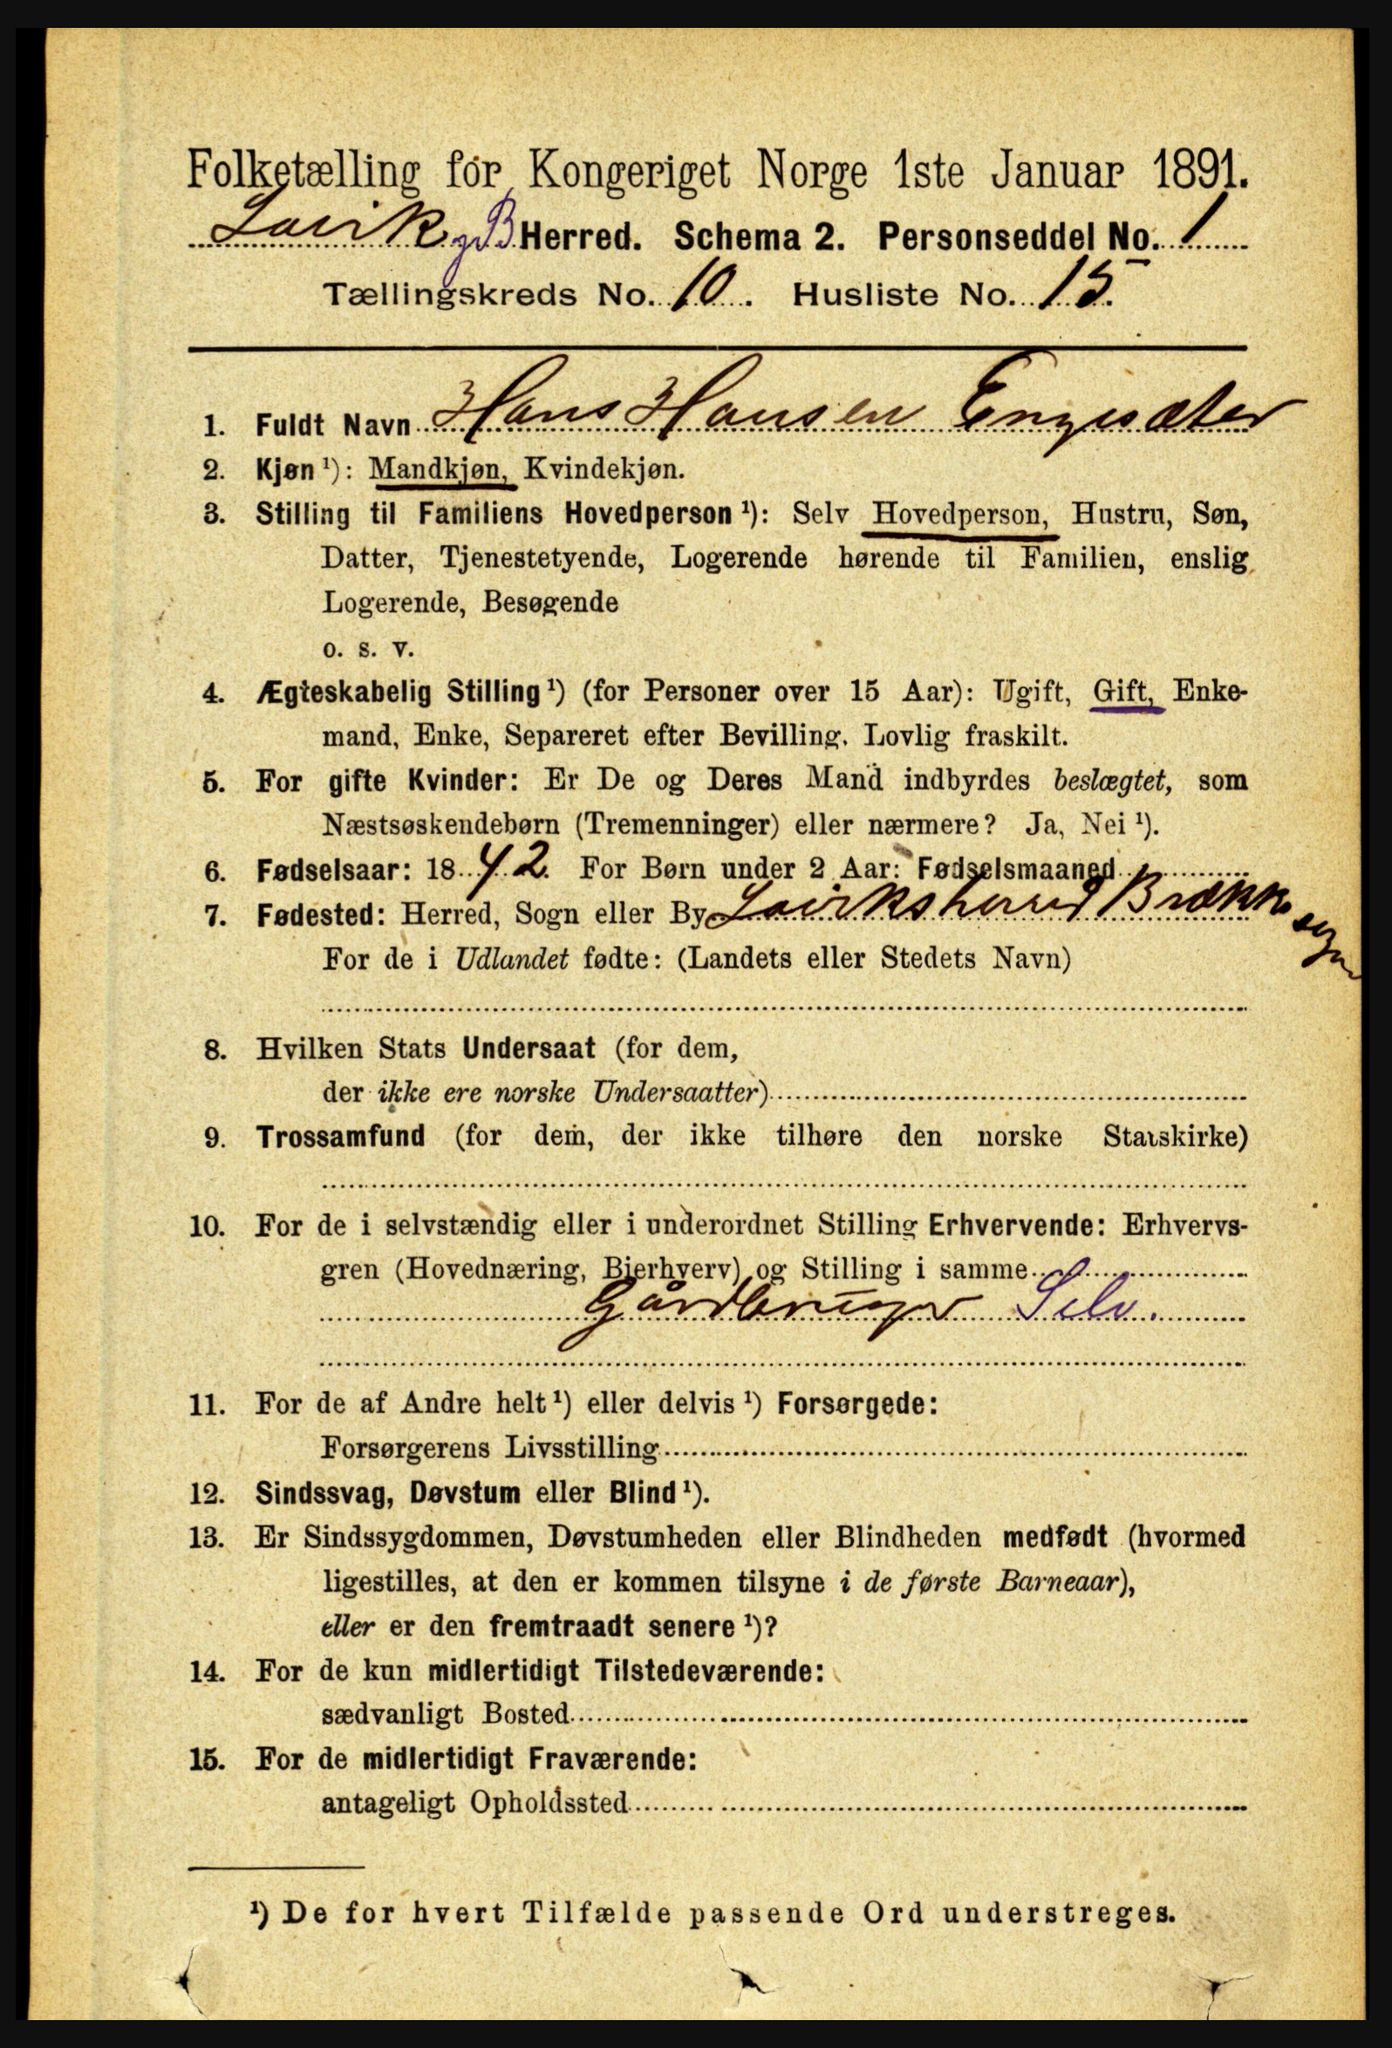 Folketælling for Kongeriget Norge 1ste Januar 1891.
Lavik og B Herred. Schema 2. Personseddel No. 1
Tællingskreds No. 10. Husliste No. 15.
1. Fuldt Navn Hans Hansen Engesæter
2. Kjøn ¹): Mandkjøn, Kvindekjøn.
3. Stilling til Familiens Hovedperson ¹): Selv Hovedperson, Hustru, Søn,
Datter, Tjenestetyende, Logerende hørende til Familien, enslig
Logerende, Besøgende
o. s. v.
4. Ægteskabelig Stilling ¹) (for Personer over 15 Aar): Ugift, Gift, Enke-
mand, Enke, Separeret efter Bevilling. Lovlig fraskilt.
5. For gifte Kvinder: Er De og Deres Mand indbyrdes beslægtet, som
Næstsøskendebørn (Tremenninger) eller nærmere? Ja, Nei ¹).
6. Fødselsaar: 1842. For Børn under 2 Aar: Fødselsmaaned
7. Fødested: Herred, Sogn eller By Laviksherred Brække sogn
For de i Udlandet fødte: (Landets eller Stedets Navn)
8. Hvilken Stats Undersaat (for dem,
der ikke ere norske Undersaatter)
9. Trossamfund (for dem, der ikke tilhøre den norske Statskirke)
10. For de i selvstændig eller i underordnet Stilling Erhvervende: Erhvervs-
gren (Hovednæring, Bierhverv) og Stilling i samme
Gårdbruger Selv.
11. For de af Andre helt ¹) eller delvis ¹) Forsørgede:
Forsørgerens Livsstilling
12. Sindssvag, Døvstum eller Blind ¹).
13. Er Sindssygdommen, Døvstumheden eller Blindheden medfødt (hvormed
ligestilles, at den er kommen tilsyne i de første Barneaar),
eller er den fremtraadt senere ¹)?
14. For de kun midlertidigt Tilstedeværende:
sædvanligt Bosted
15. For de midlertidigt Fraværende:
antageligt Opholdssted
¹) De for hvert Tilfælde passende Ord understreges.